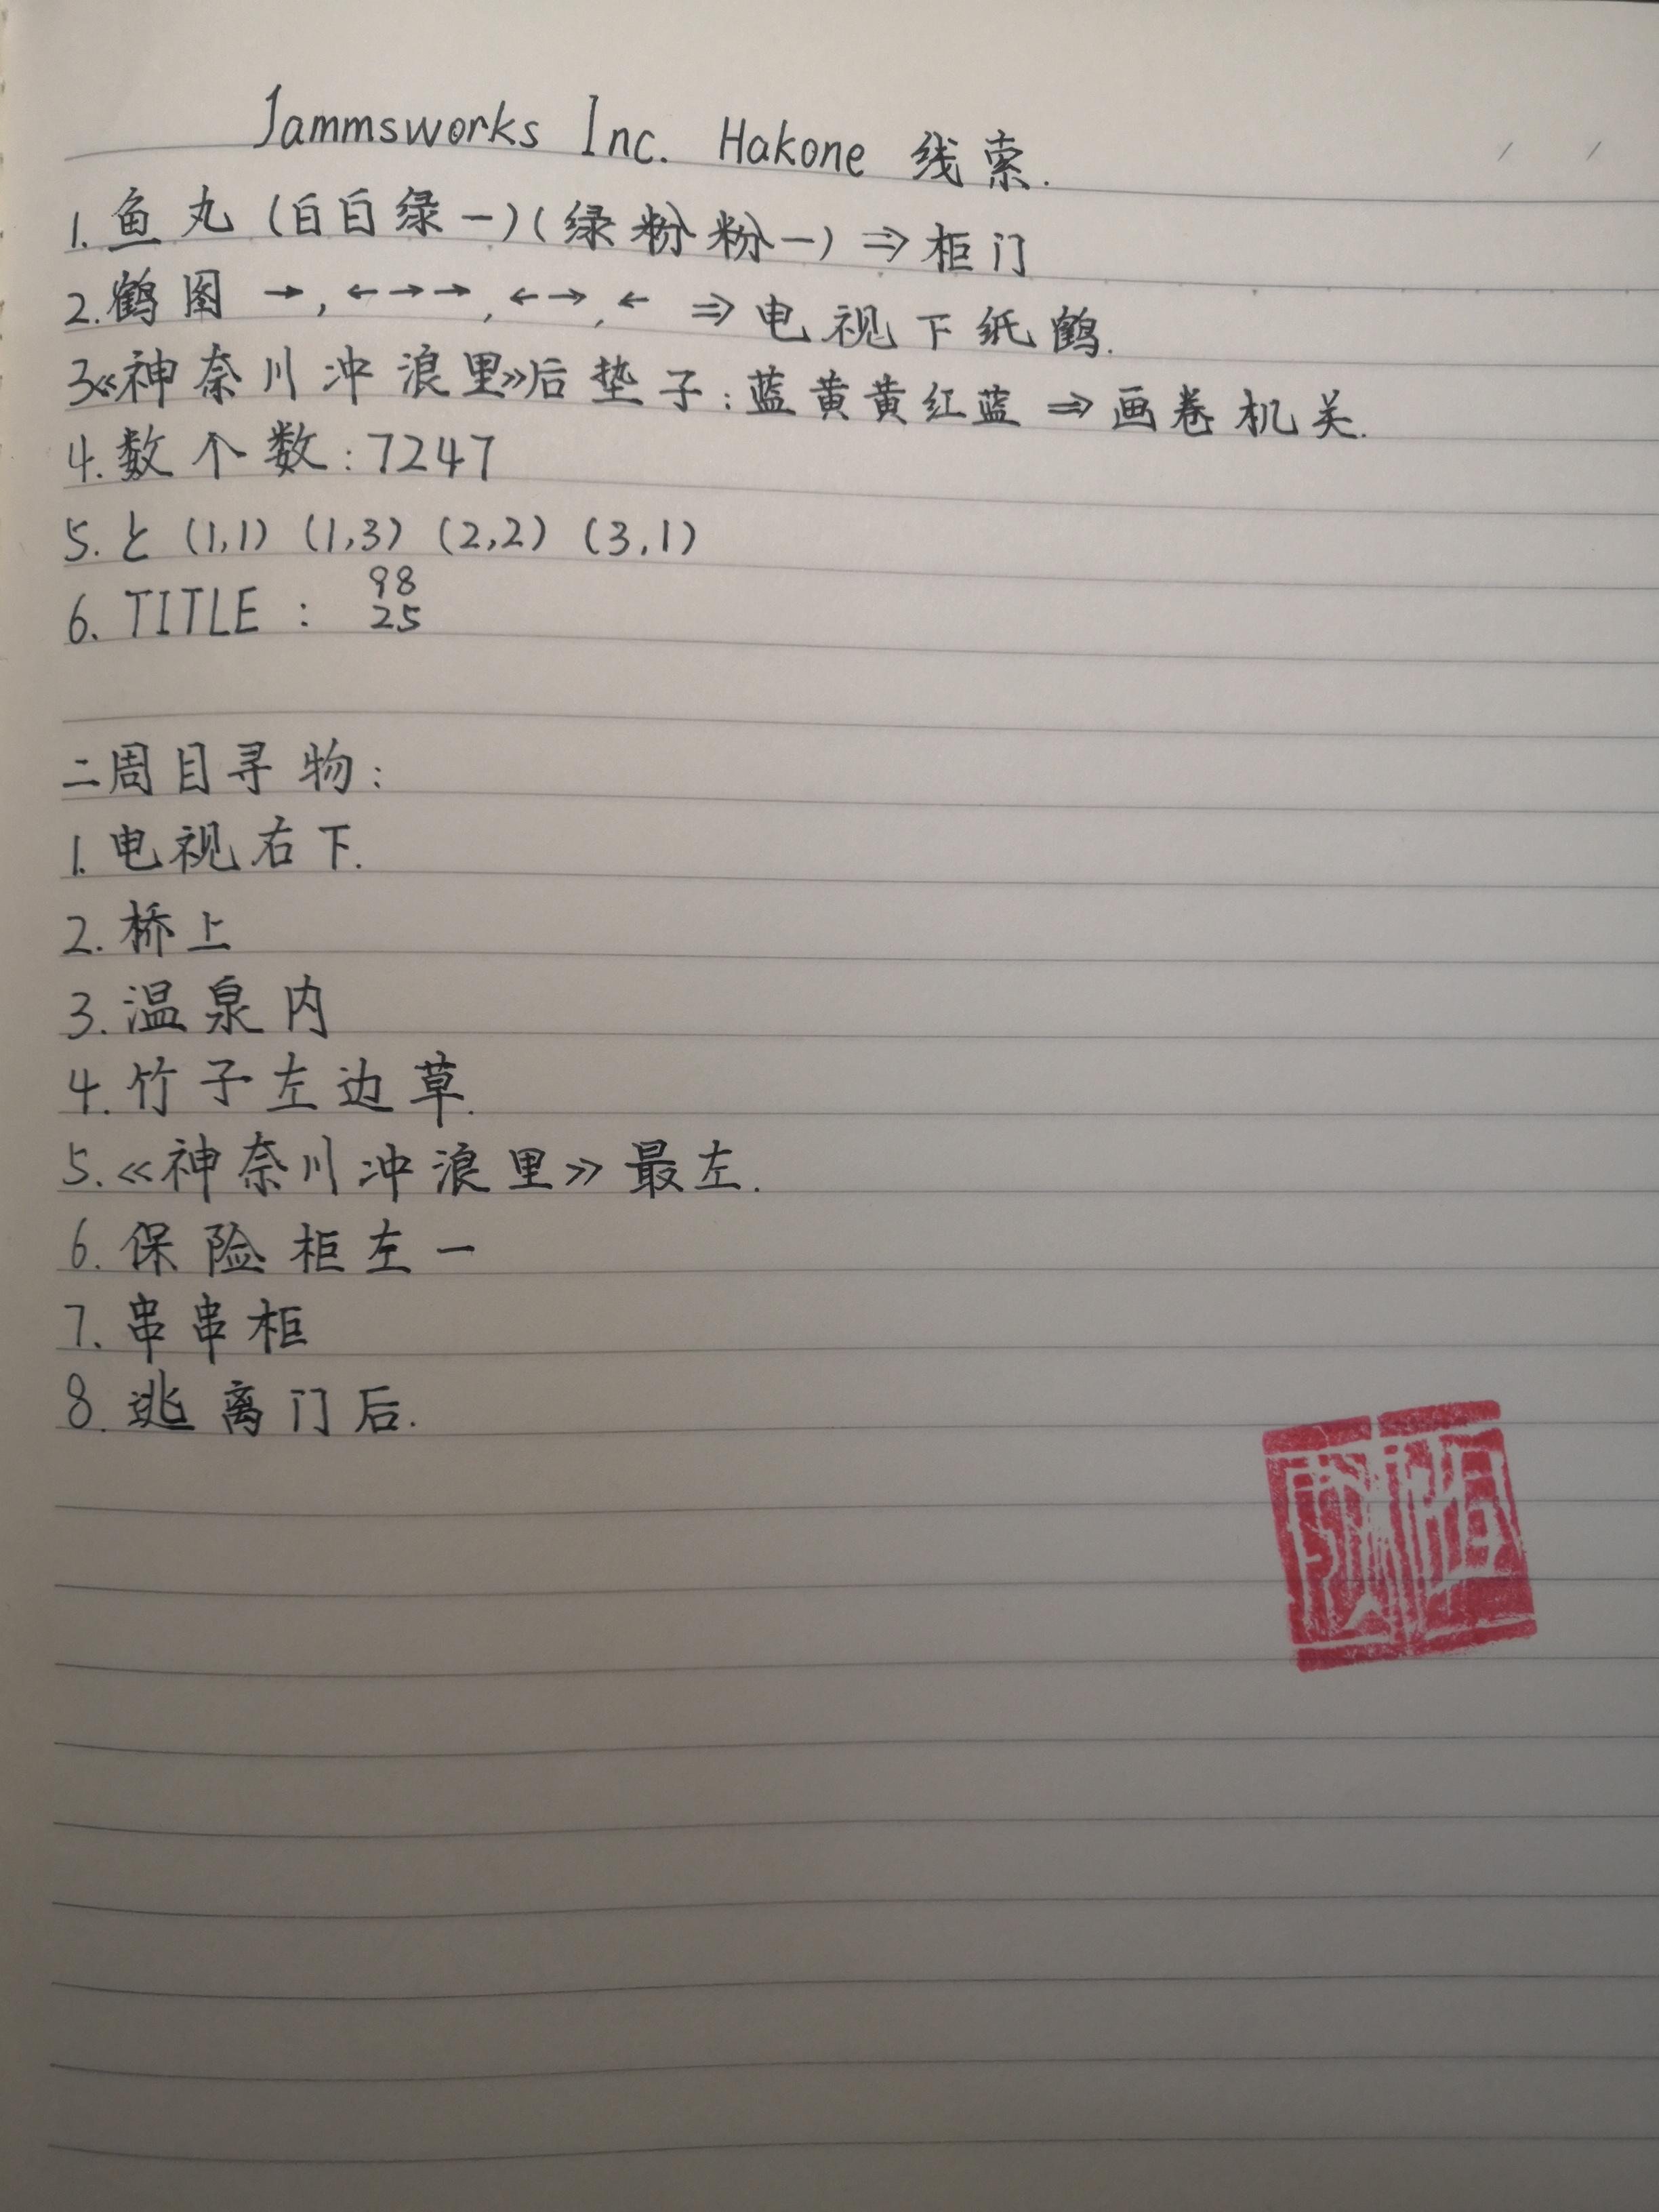 Jammsworks Inc. Hakone 线索.
1. 鱼丸 (白白绿一)(绿粉粉一) ⇒ 柜门
2. 鹤图 →, ←→→, ←→, ← ⇒ 电视下纸鹤.
3《神奈川冲浪里》后垫子: 蓝黄黄红蓝 ⇒ 画卷机关.
4. 数个数: 7247
5. と (1,1) (1,3) (2,2) (3,1)
98
6. TITLE : 25
二周目寻物:
1. 电视右下.
2. 桥上
3. 温泉内
4. 竹子左边草.
5. 《神奈川冲浪里》最左.
6. 保险柜左一
7. 串串柜
8. 逃离门后.